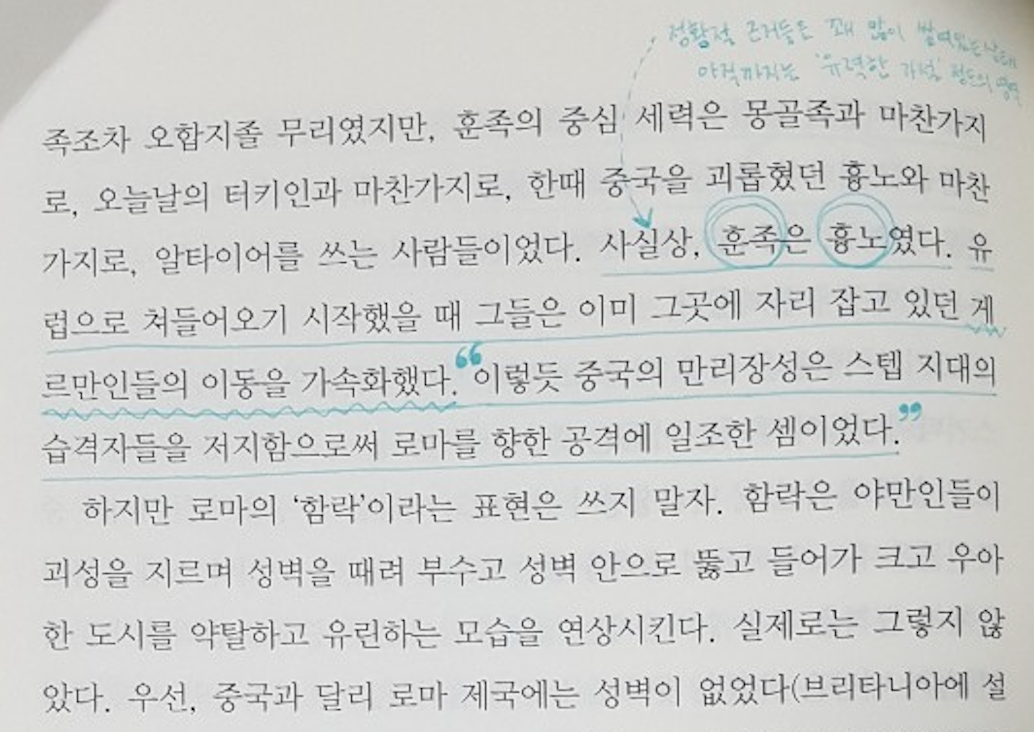 정황적 근거들은 꽤 많이 쌓여있는 상태
아직까지는 '유력한 가설' 정도의 영역
족조차 오합지졸 무리였지만, 훈족의 중심 세력은 몽골족과 마찬가지
로, 오늘날의 터키인과 마찬가지로, 한때 중국을 괴롭혔던 흉노와 마찬
가지로, 알타이어를 쓰는 사람들이었다. 사실상, 훈족은 흉노였다. 유
럽으로 쳐들어오기 시작했을 때 그들은 이미 그곳에 자리 잡고 있던 게
르만인들의 이동을 가속화했다. “이렇듯 중국의 만리장성은 스텝 지대의
습격자들을 저지함으로써 로마를 향한 공격에 일조한 셈이었다.”
하지만 로마의 ‘함락’이라는 표현은 쓰지 말자. 함락은 야만인들이
괴성을 지르며 성벽을 때려 부수고 성벽 안으로 뚫고 들어가 크고 우아
한 도시를 약탈하고 유린하는 모습을 연상시킨다. 실제로는 그렇지 않
았다. 우선, 중국과 달리 로마 제국에는 성벽이 없었다(브리타니아에 설